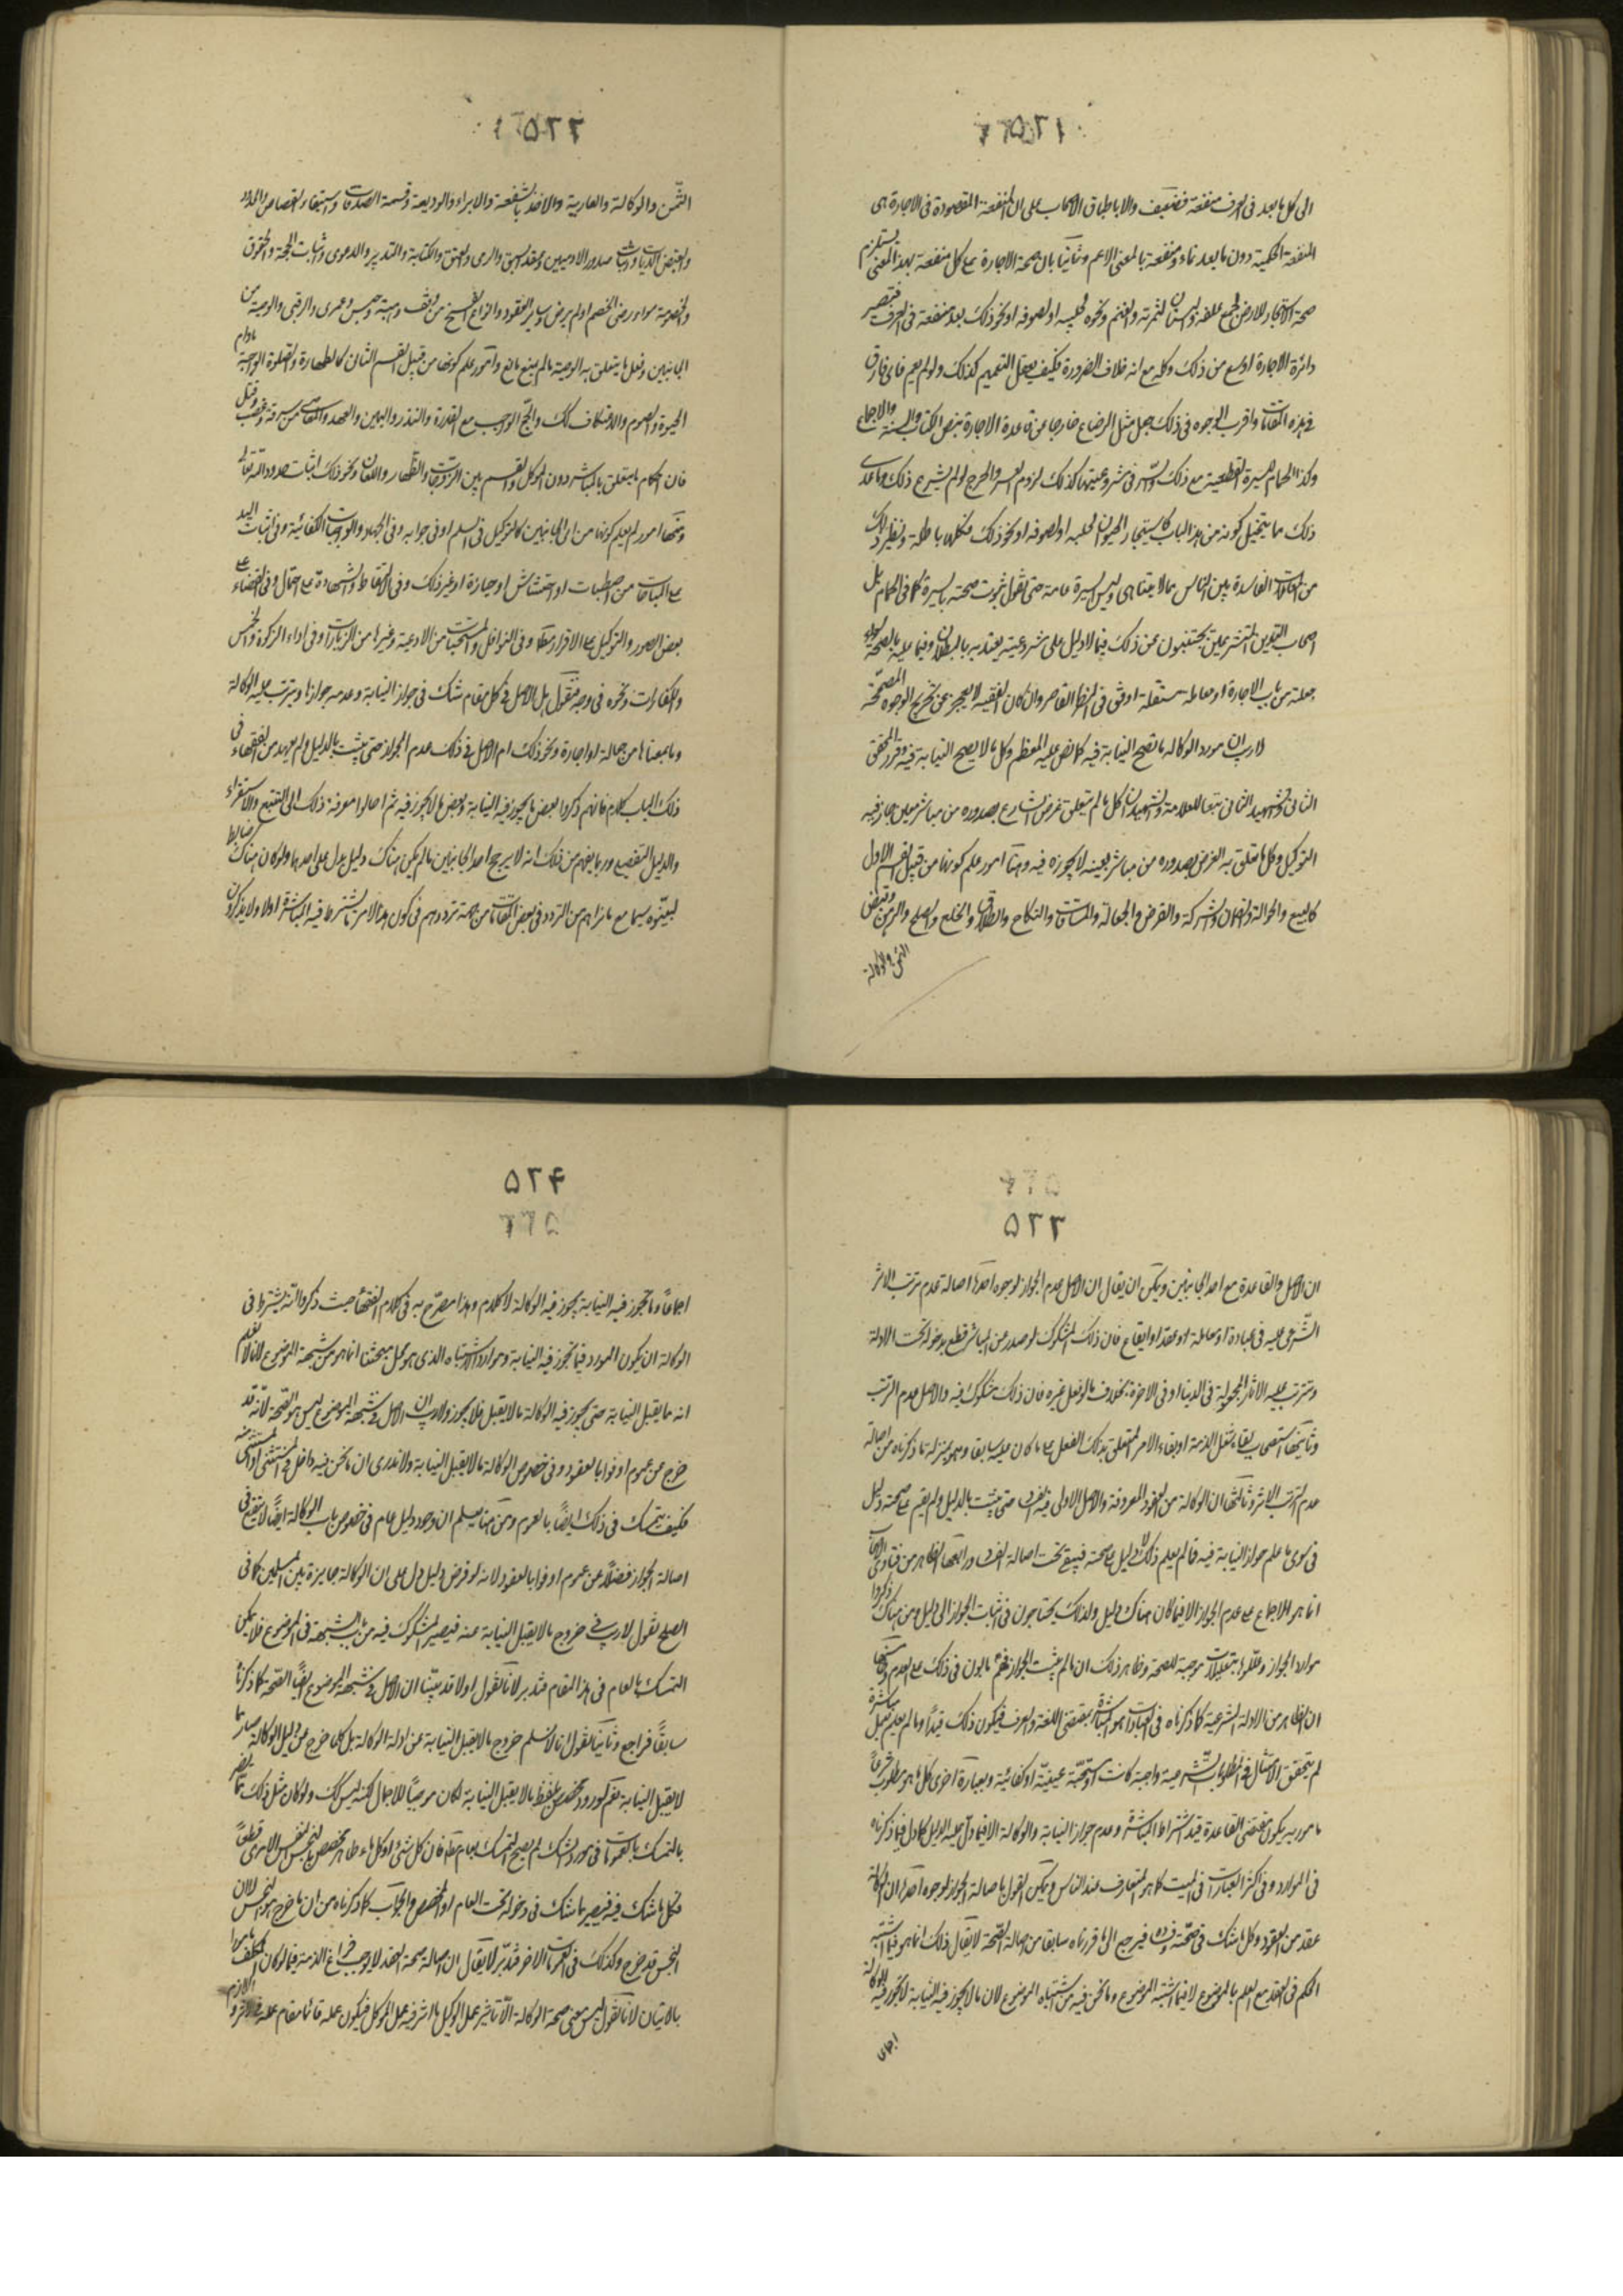 ۵۲۱
الی کل ما یعد فی العرف منفعة فضعیف والا باطباق الاصحاب علی ان المنفعة المقصودة فی الاجارة هی
المنفعة الحکمیة دون ما یعد نماء ومنفعة بالمعنی الاعم وثانیا بان صحة الاجارة علی کل منفعة بهذا المعنی یستلزم
صحة استیجار الارض لجمع علفه والبستان لثمرته والغنم ونحوه لحلیبه او لصوفه او نحو ذلک بعد منفعة فی العرف فتصیر
دائرة الاجارة اوسع من ذلک وکله مع انه خلاف الضرورة فکیف یعقل التعمیم کذلک ولو لم یعم فای فارق
فی هذه المقامات واقرب الوجوه فی ذلک جعل مثل الرضاع خارجا عن قاعدة الاجارة بنص الکتاب والسنة والاجماع
وکذا الحمام للسیرة القطعیة مع ذلک والسر فی مشروعیتهما کذلک لزوم العسر والحرج لو لم یشرع ذلک وما عدا
ذلک ما یتخیل کونه من هذا الباب کاستیجار الحیوان لحلبه او لصوفه او نحو ذلک فکلها باطلة ونظیر ذلک
من المعاملات الفاسدة بین الناس مما لا یتناهی ولیس السیرة عامة حتی نقول بثبوت صحته بالسیرة کما فی الحمام بل
اصحاب التدین المتشرعین یجتنبون عن ذلک فیما لا دلیل علی شرعیته یعتد به بالبطلان وفیما علیه بالصحة سواء
جعلته من باب الاجارة او معاملة مستقلة اوفق فی النظر القاصر وان کان الفقیه لا یعجز عن تخریج الوجوه المصححة
لا ریب ان مورد الوکالة ما تصح النیابة فیه کما نص علیه المعظم وکل ما لا یصح النیابة فیه وقرر المحقق
الثانی والشهید الثانی تبعا للعلامة والشهید ان کل ما لم یتعلق غرض الشارع بصدوره من مباشر معین جاز فیه
التوکیل وکل ما تعلق به الغرض بصدوره من مباشر بعینه لا یجوز فیه وهنا امور علم کونها من قبیل القسم الاول
کالبیع والحوالة والضمان والشرکة والقرض والجعالة والمساقات والنکاح والطلاق والخلع والصلح والرهن وقبض
الثمن والوکالة
۵۲۲
الثمن والوکالة والعاریة والاخذ بالشفعة والابراء والودیعة وقسمة الصدقات واستیفاء القصاص والحدود
والقبض الدیات وثبات صدور الادمیین وعقد السبق والرمی والعتق والکتابة والتدبیر والدعوی واثبات الحجة والحقوق
والخصومة سواء رضی الخصم او لم یرض وسایر العقود وانواع الفسخ من وقف وهبة وحبس وعمری والرقبی والوصیة من
الجانبین وفعل ما یتعلق به الوصیة ما لم یمنع مانع وامور علم کونها من قبیل القسم الثانی کالطهارة والصلوة الواجبة مادام
الحیوة والصوم والاعتکاف کک والحج الواجب مع القدرة والنذر والیمین والعهد والمعاصی من سرقة وغصب وقتل
فان احکام ما یتعلق بالمباشر دون الموکل والقسم بین الزوجات والظهار واللعان ونحو ذلک اثبات حدود الله تعالی
ومنها امور لم یعلم کونها من ای الجانبین کالتوکیل فی السلم او فی جوابه وفی الجهاد والواجبات الکفائیة وفی اثبات الید
علی المباحات من احتطاب او احتشاش او حیازة او غیر ذلک وفی الالتقاط والشهادة علی احتمال وفی القضاء علی
بعض الصور والتوکیل علی الاقرار مطلقا وفی النوافل والمستحبات من الادعیة وغیرها من الزیارات وفی اداء الزکوة والخمس
والکفارات ونحوه فی وجه فنقول هل الاصل فی کل مقام شک فی جواز النیابة وعدمه جوازها وترتب علیه الوکالة
وما بمعناها من جعالة او اجارة ونحو ذلک ام الاصل فی ذلک عدم الجواز حتی یثبت بالدلیل ولم یعهد من الفقهاء فی
ذلک الباب کلام فانهم ذکروا بعض ما یجوز فیه النیابة وبعض ما لا یجوز فیه ثم احالوا معرفة ذلک الی التتبع والاستقراء
والدلیل التفصیلی وربما یفهم من ذلک انه لا یرجح احد الجانبین ما لم یکن هناک دلیل یدل علی احدهما ولو کان هناک ضابط
لبینوه سیما مع ما نراهم من التردد فی بعض المقامات من جهة ترددهم فی کون هذا الامر مما یشترط فیه المباشرة اولا ولا یذکرون
۵۲۳
ان الاصل والقاعدة مع احد الجانبین ویمکن ان یقال ان الاصل عدم الجواز لوجوه احدها اصالة عدم ترتب الاثر
الشرعی علیه فی عبادة او معاملة او عقد او ایقاع فان ذلک المشکوک لو صدر عن المباشر قطع بدخوله تحت الادلة
وبترتب علیه الاثار المجعولة فی الدنیا او فی الاخرة بخلاف ما لو فعل غیره فان ذلک مشکوک فیه والاصل عدم الترتب
وثانیها استصحاب بقاء شغل الذمة او بقاء الامر المتعلق بذلک الفعل علی ما کان علیه سابقا وهو بمنزلة ما ذکرناه من اصالة
عدم الترتب الاثر وثالثها ان الوکالة من العقود المعروفة والاصل الاولی فیه الفساد حتی یثبت بالدلیل ولم یقم علی صحته دلیل
فی سوی ما علم جواز النیابة فیه فما لم یعلم ذلک لا دلیل علی صحته فیبقی تحت اصالة الفساد ورابعها الظاهر من فتاوی الاصحاب
انما هو الاجماع علی عدم الجواز الا فیما کان هناک دلیل ولذلک یحتاجون فی اثبات الجواز الی دلیل ومن هناک ذکروا
موارد الجواز وعللوها بتعلیلات موجبة للصحة وظاهر ذلک ان ما لم یثبت الجواز فهم بانون فی ذلک علی العدم وخامسها
ان الظاهر من الادلة الشرعیة کما ذکرناه فی العبادات هو المباشرة بمقتضی اللغة والعرف فیکون ذلک قیدا وما لم یعلم یعمل مباشرة
لم یتحقق الامتثال فی المطلوبات الشرعیة واجبة کانت او مستحبة عینیة او کفائیة وبعبارة اخری کل ما هو مطلوب شرعا
مامور به یکون مقتضی القاعدة قید اشتراط المباشرة وعدم جواز النیابة والوکالة الا فیما دل علیه الدلیل کما دل فیما ذکرناه
فی الموارد وفی اکثر العبادات فی المیت کما هو المتعارف عند الناس ویمکن القول باصالة الجواز لوجوه احدها ان الوکالة
عقد من العقود وکل ما شک فی صحته وفساده فیرجع الی ما قررناه سابقا من اصالة الصحة لا یقال ذلک انما هو فیما اشتبه
الحکم فی العقد مع العلم بالموضوع لا فیما اشتبه الموضوع وما نحن فیه من اشتباه الموضوع لان ما لا یجوز فیه النیابة لا یجوز فیه الوکالة
اجماعا
۵۲۴
اجماعا وما تجوز فیه النیابة یجوز فیه الوکالة لا کلام وهذا مصرح به فی کلام الفقهاء حیث ذکروا انه یشترط فی
الوکالة ان یکون المورد فیما تجوز فیه النیابة وموارد الاشتباه الذی هو محل مبحثنا انما هو من شبهة الموضوع لانا لا نعلم
انه ما یقبل النیابة حتی یجوز فیه الوکالة ما لا یقبل فلا یجوز ولا ریب ان الاصل فی شبهة الموضوع لیس هو الصحة لانه قد
خرج عن عموم اوفوا بالعقود وفی خصوص الوکالة ما لا یقبل النیابة ولا ندری ان ما نحن فیه داخل فی المستثنی او المستثنی منه
فکیف یتمسک فی ذلک ایضا بالعموم ومن هنا یعلم ان وجود دلیل عام فی خصوص باب الوکالة ایضا لا ینفع فی
اصالة الجواز فضلا عن عموم اوفوا بالعقود لانه لو فرض دلیل دل علی ان الوکالة جایزة بین المسلمین کما فی
الصلح نقول لا ریب فی خروج ما لا یقبل النیابة عنه فیصیر المشکوک فیه من باب الشبهة فی الموضوع فلا یمکن
التمسک بالعام فی هذا المقام فتدبر لانا نقول اولا قد بینا ان الاصل فی شبهة الموضوع ایضا الصحة کما ذکرنا
سابقا فراجع وثانیا نقول انا لا نسلم خروج ما لا یقبل النیابة عن ادلة الوکالة بل کلما خرج عن دلیل الوکالة صار مما
لا یقبل النیابة نعم لو ورد مخصص بلفظ ما لا یقبل النیابة لکان موجبا للاجمال لکنه لیس کک ولو کان مثل ذلک مما یضر
بالتمسک بالعمومات فی مورد الشک لم یصح التمسک بعام قط فان کل شئ او کل ماء طاهر مخصص بالنجس النفس الامری قطعا
فکل ما شک فیه فیصیر مما شک فی دخوله تحت العام او المخصص والجواب کما ذکرناه من ان ما خرج هو النجس لا ان
النجس قد خرج وکذلک فی العمومات الاخر فتدبر لا یقال ان اصالة صحة العقد لا یوجب فراغ الذمة فیما لو کان المکلف مامورا
بالاتیان لانا نقول لیس معنی صحة الوکالة الا تاثیر عمل الوکیل ما اثر فیه عمل الموکل فیکون عمله قائما مقام عمله